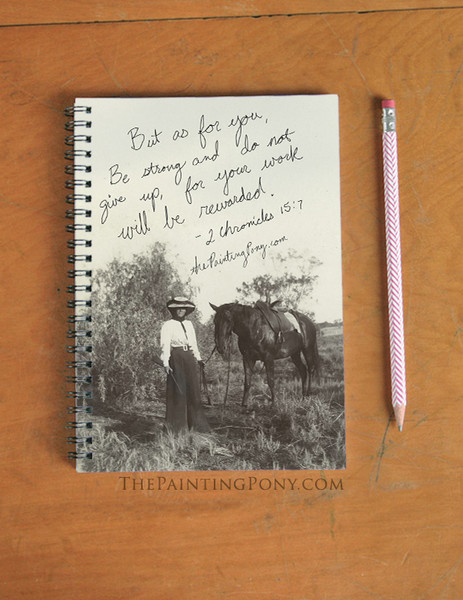 But as for you,
Be strong and do not
give up, for your work
will be rewarded.
- 2 Chronicles 15:7
thePaintingPony.com
ThePaintingPony.com